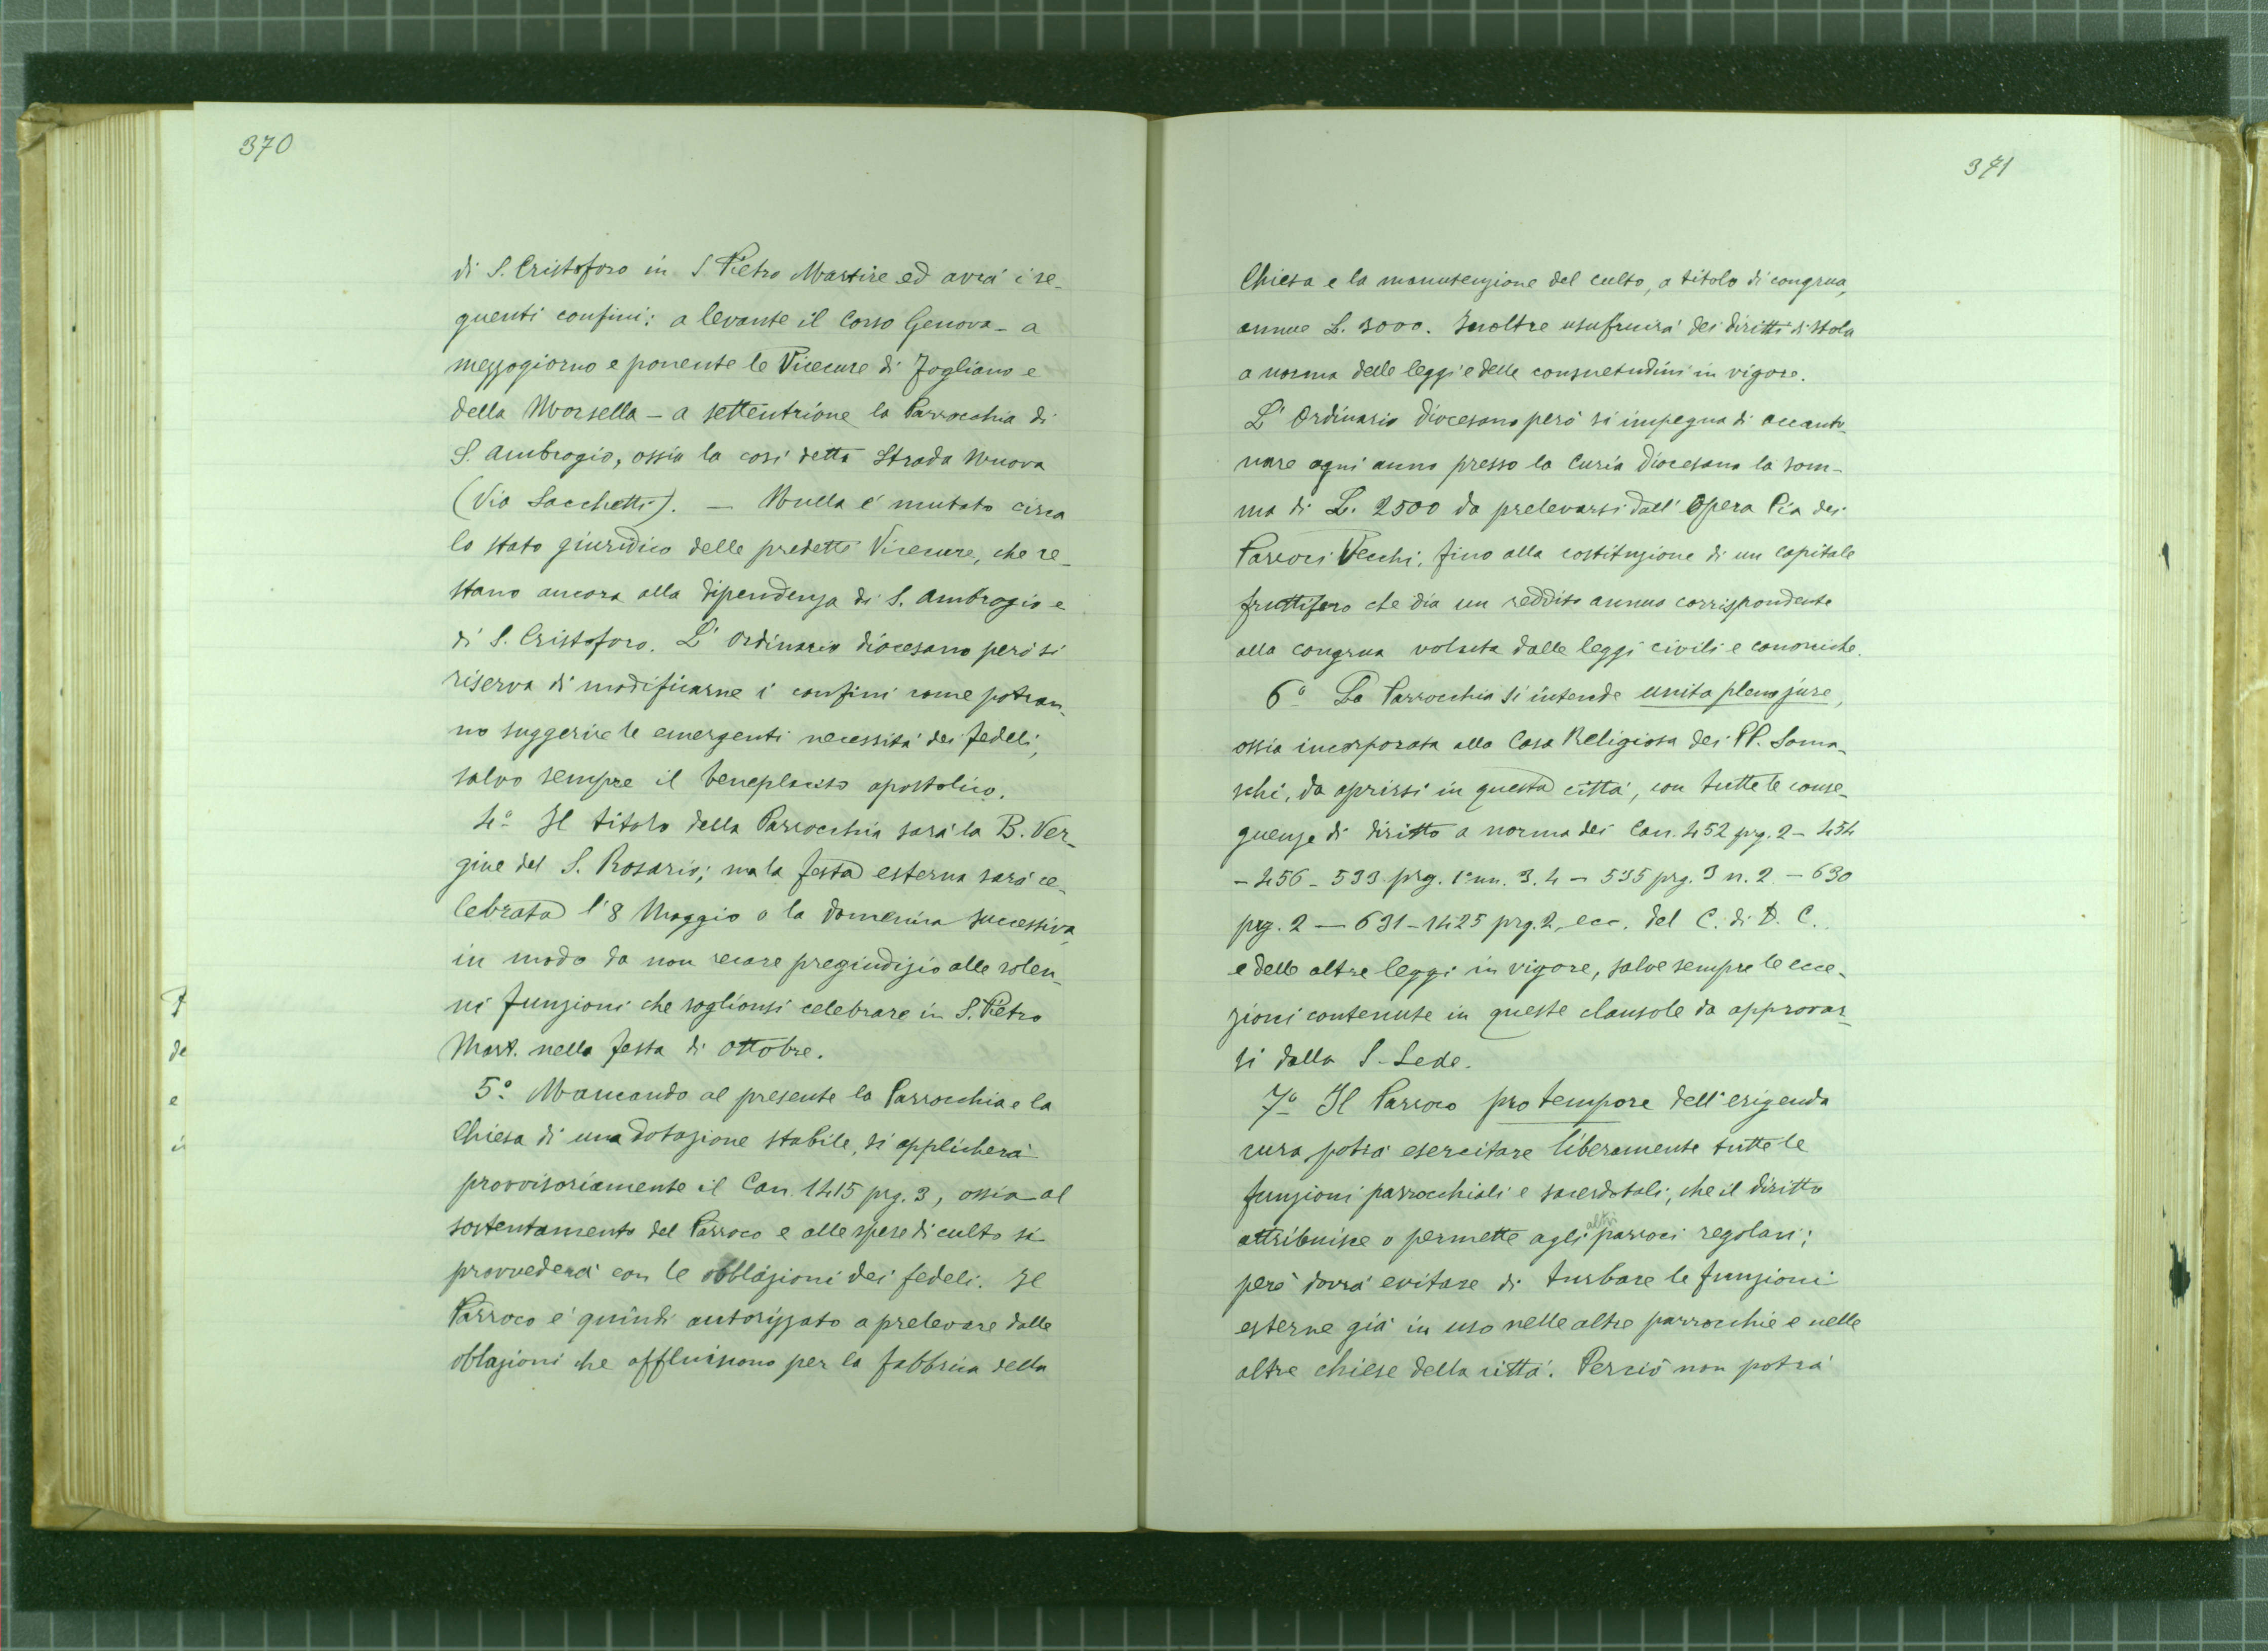 370
di S. Cristoforo in S Pietro Martire ed avrà i se-
guenti confini: a levante il Corso Genova - a
mezzogiorno e ponente le Vicecure di Fogliano e
della Morsella - a settentrione la Parrocchia di
S. Ambrogio, ossia la così detta Strada Nuova
(Via Sacchetti). — Nulla è mutato circa
lo stato giuridico delle predette Vicecure, che re-
stano ancora alla dipendenza di S. Ambrogio e
di S. Cristoforo. L' Ordinario diocesano però si
riserva di modificarne i confini come potran-
no suggerire le emergenti necessità dei fedeli,
salvo sempre il beneplacito apostolico.
4º Il titolo della Parrocchia sarà la B. Ver-
gine del S. Rosario; ma la festa esterna sarà ce-
lebrata l'8 Maggio o la domenica successiva,
in modo da non recare pregiudizio alle solen-
ni funzioni che soglionsi celebrare in S. Pietro
Mart. nella festa di ottobre.
5º Mancando al presente la Parrocchia e la
Chiesa di una dotazione stabile, si applicherà
provvisoriamente il Can. 1415 prg. 3, ossia al
sostentamento del Parroco e alle spese di culto si
provvederà con le obblazioni dei fedeli. Il
Parroco è quindi autorizzato a prelevare dalle
oblazioni che affluiscono per la fabbrica della
de
e
371
Chiesa e la manutenzione del culto, a titolo di congrua,
annue L. 3000. Inoltre usufruirà dei diritti di stola
a norma delle leggi e delle consuetudini in vigore.
L' Ordinario diocesano però si impegna di accanto-
nare ogni anno presso la Curia diocesana la som-
ma di L. 2500 da prelevarsi dall' Opera Pia dei
Parroci Vecchi, fino alla costituzione di un capitale
fruttifero che dia un reddito annuo corrispondente
alla congrua voluta dalle leggi civili e canoniche.
6º La Parrocchia si intende unita pleno jure,
ossia incorporata alla Casa Religiosa dei PP. Soma-
schi, da aprirsi in questa città, con tutte le conse-
guenze di diritto a norma dei Can. 452 prg. 2 - 454
- 456 - 533 prg. 1º nn. 3. 4 - 535 prg. 3 n. 2 - 630
prg. 2 — 631 - 1425 prg. 2, ecc. del C. di D. C.
e delle altre leggi in vigore, salve sempre le ecce-
zioni contenute in queste clausole da approvar-
si dalla S. Sede.
7º Il Parroco pro tempore dell'erigenda
cura potrà esercitare liberamente tutte le
funzioni parrocchiali e sacerdotali, che il diritto
attribuisce o permette agli altri parroci regolari;
però dovrà evitare di turbare le funzioni
esterne già in uso nelle altre parrocchie e nelle
altre chiese della città. Perciò non potrà